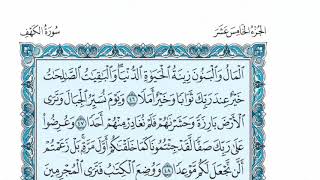 الجُزْءُ الخَامِسَ عَشَرَ
سُورَةُ الكَهْفِ
الْمَالُ وَالْبَنُونَ زِينَةُ الْحَيَوٰةِ الدُّنْيَا وَالْبَٰقِيَٰتُ الصَّٰلِحَٰتُ
خَيْرٌ عِندَ رَبِّكَ ثَوَابًا وَخَيْرٌ أَمَلًا ٤٦ وَيَوْمَ نُسَيِّرُ الْجِبَالَ وَتَرَى
الْأَرْضَ بَارِزَةً وَحَشَرْنَٰهُمْ فَلَمْ نُغَادِرْ مِنْهُمْ أَحَدًا ٤٧ وَعُرِضُوا۟
عَلَىٰ رَبِّكَ صَفًّا لَّقَدْ جِئْتُمُونَا كَمَا خَلَقْنَٰكُمْ أَوَّلَ مَرَّةٍۭ بَلْ زَعَمْتُمْ
أَلَّن نَّجْعَلَ لَكُم مَّوْعِدًا ٤٨ وَوُضِعَ الْكِتَٰبُ فَتَرَى الْمُجْرِمِينَ